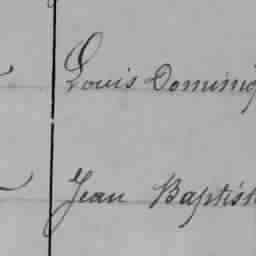 Louis Dominiq
Jean Baptist